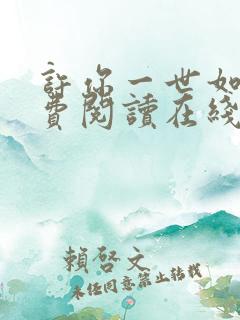 許你一世如
費閱讀在綫
賴啓文
未經同意禁止轉載